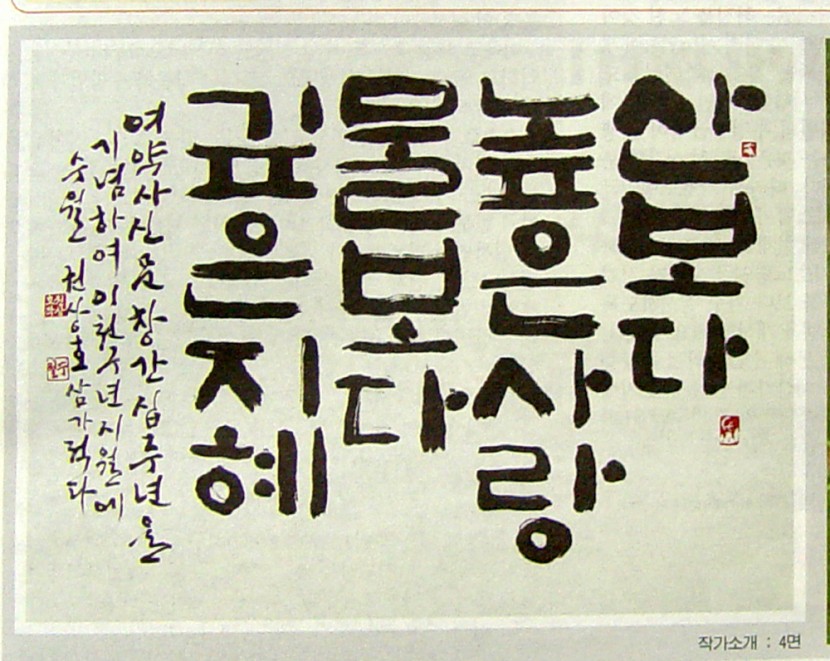 산보다
높은사랑
물보다
깊은지혜
여약사신문창간십주년을
기념하여이천구년지월에
수월 권상호삼가적다
작가소개 : 4면